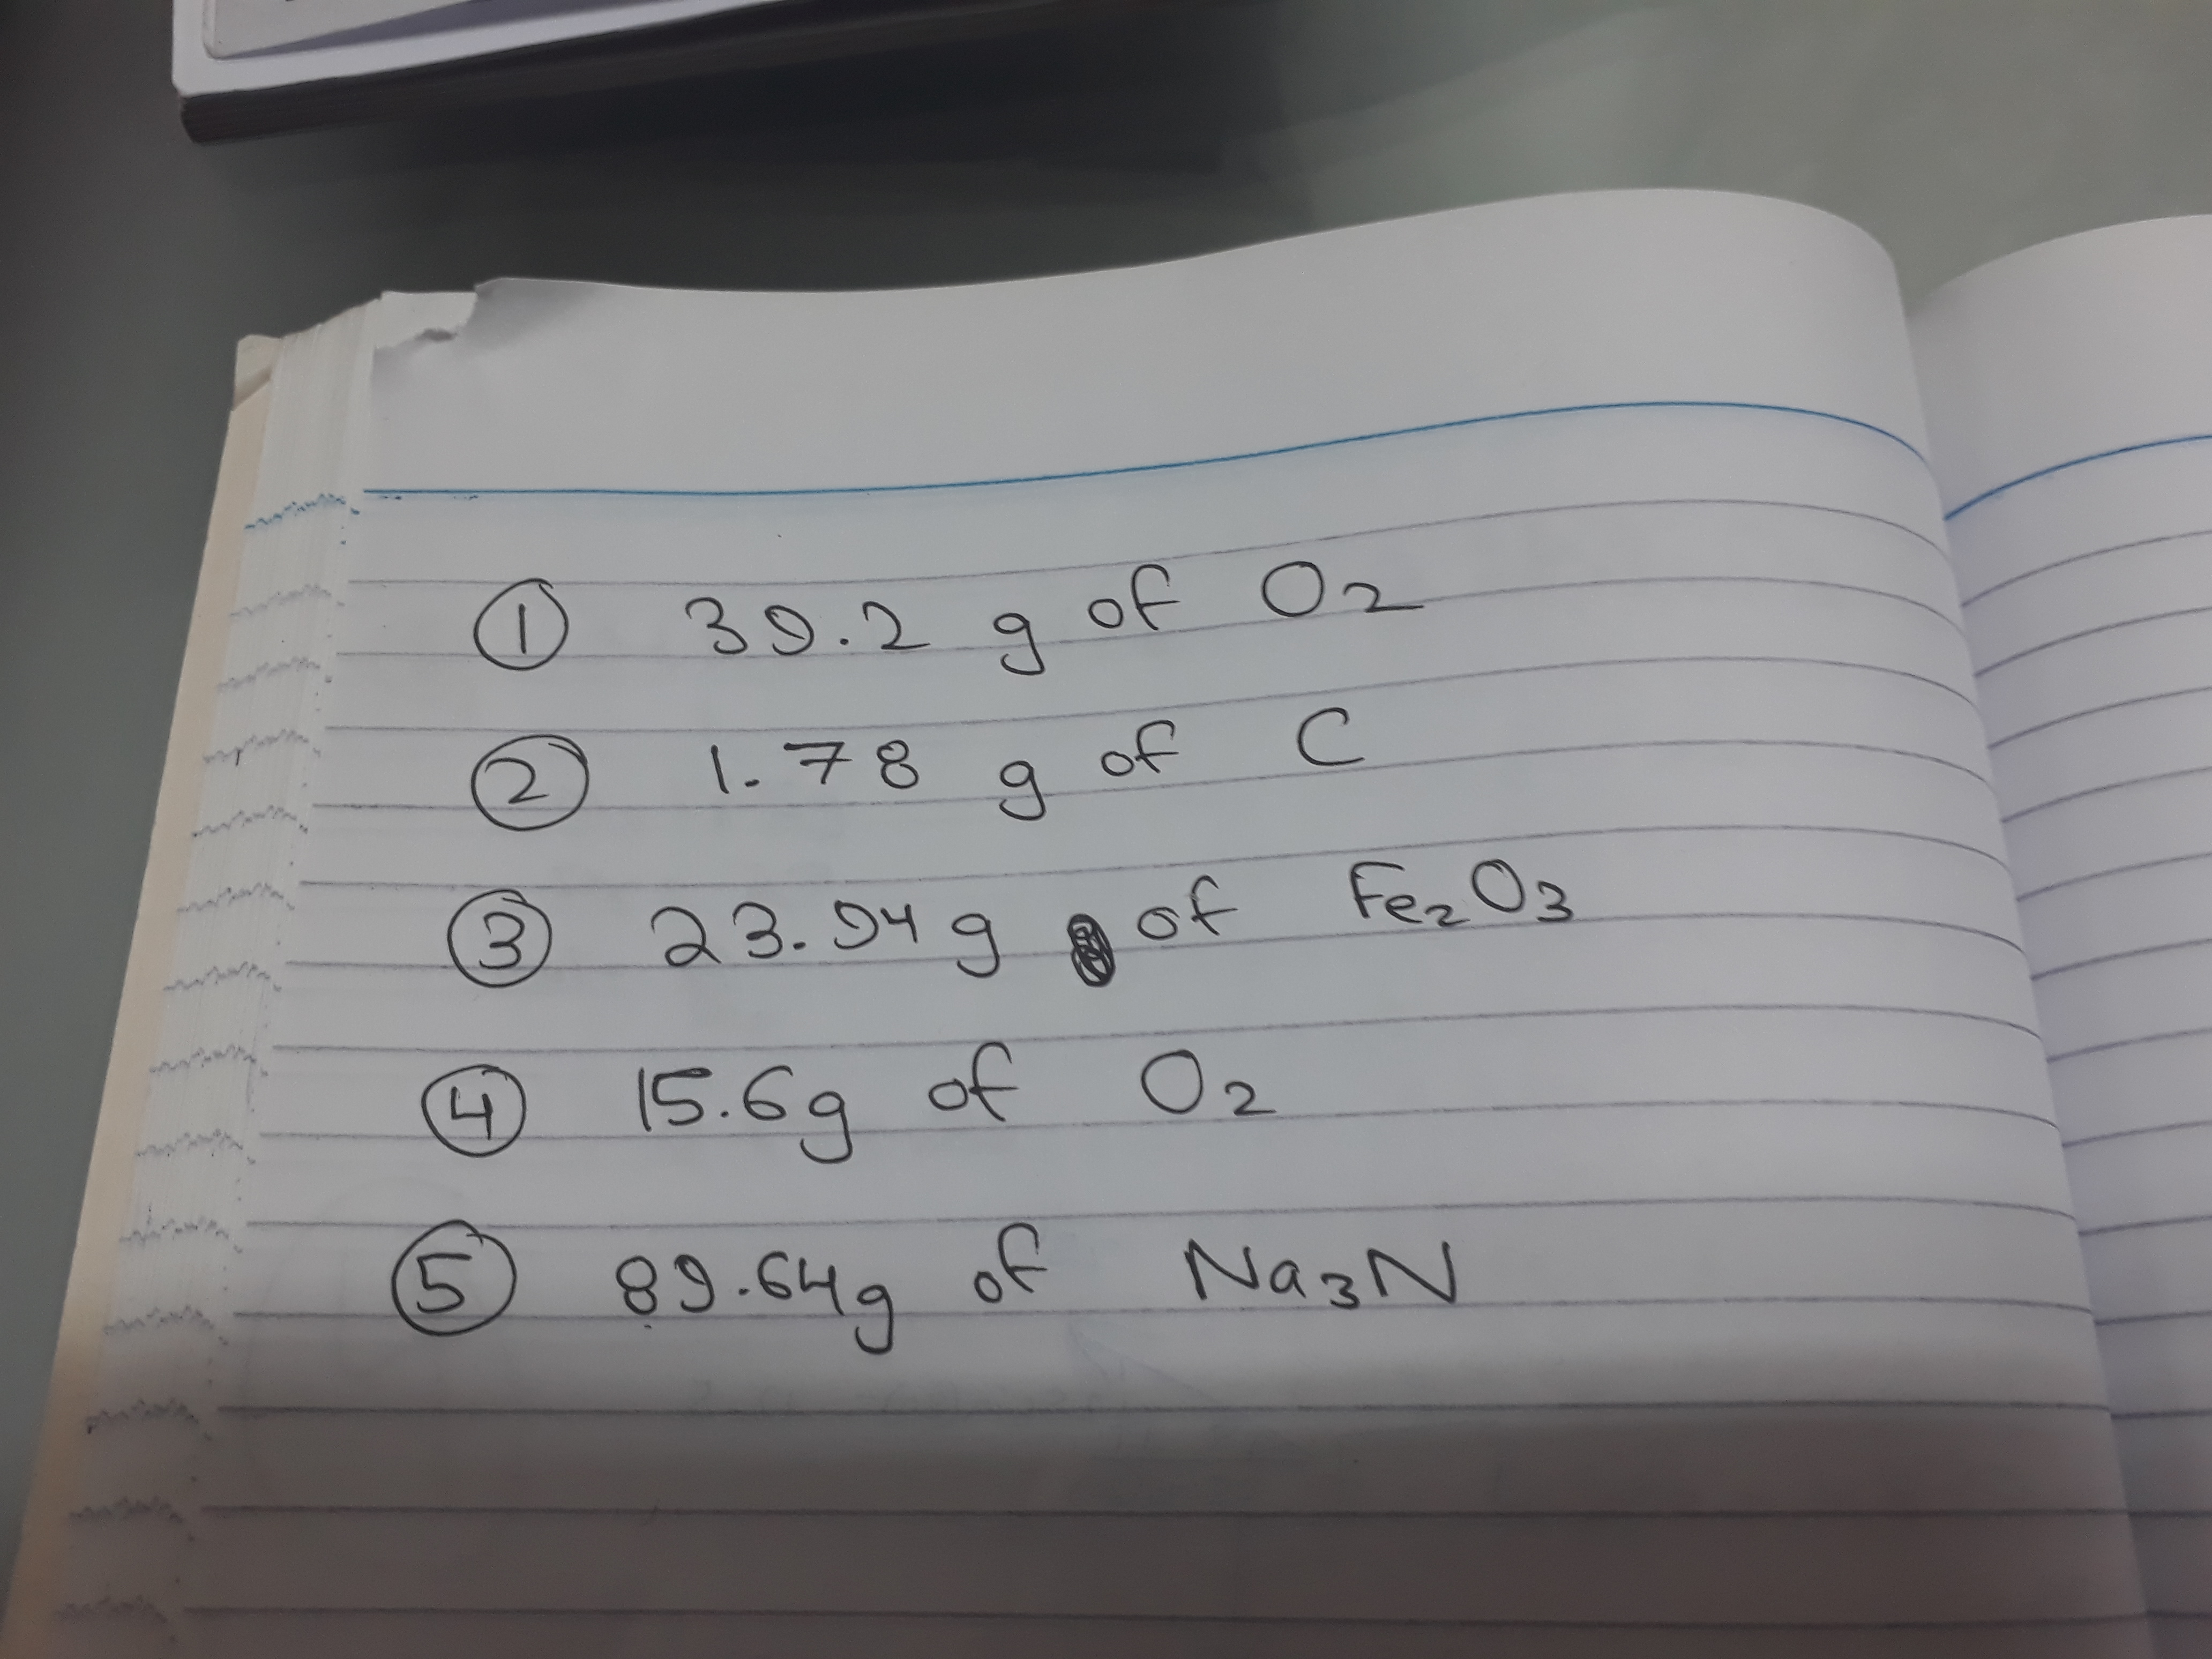 ① 39.2 g of O₂
② 1.78 g of C
③ 23.94 g of Fe₂O₃
④ 15.6g of O₂
⑤ 89.64g of Na₃N